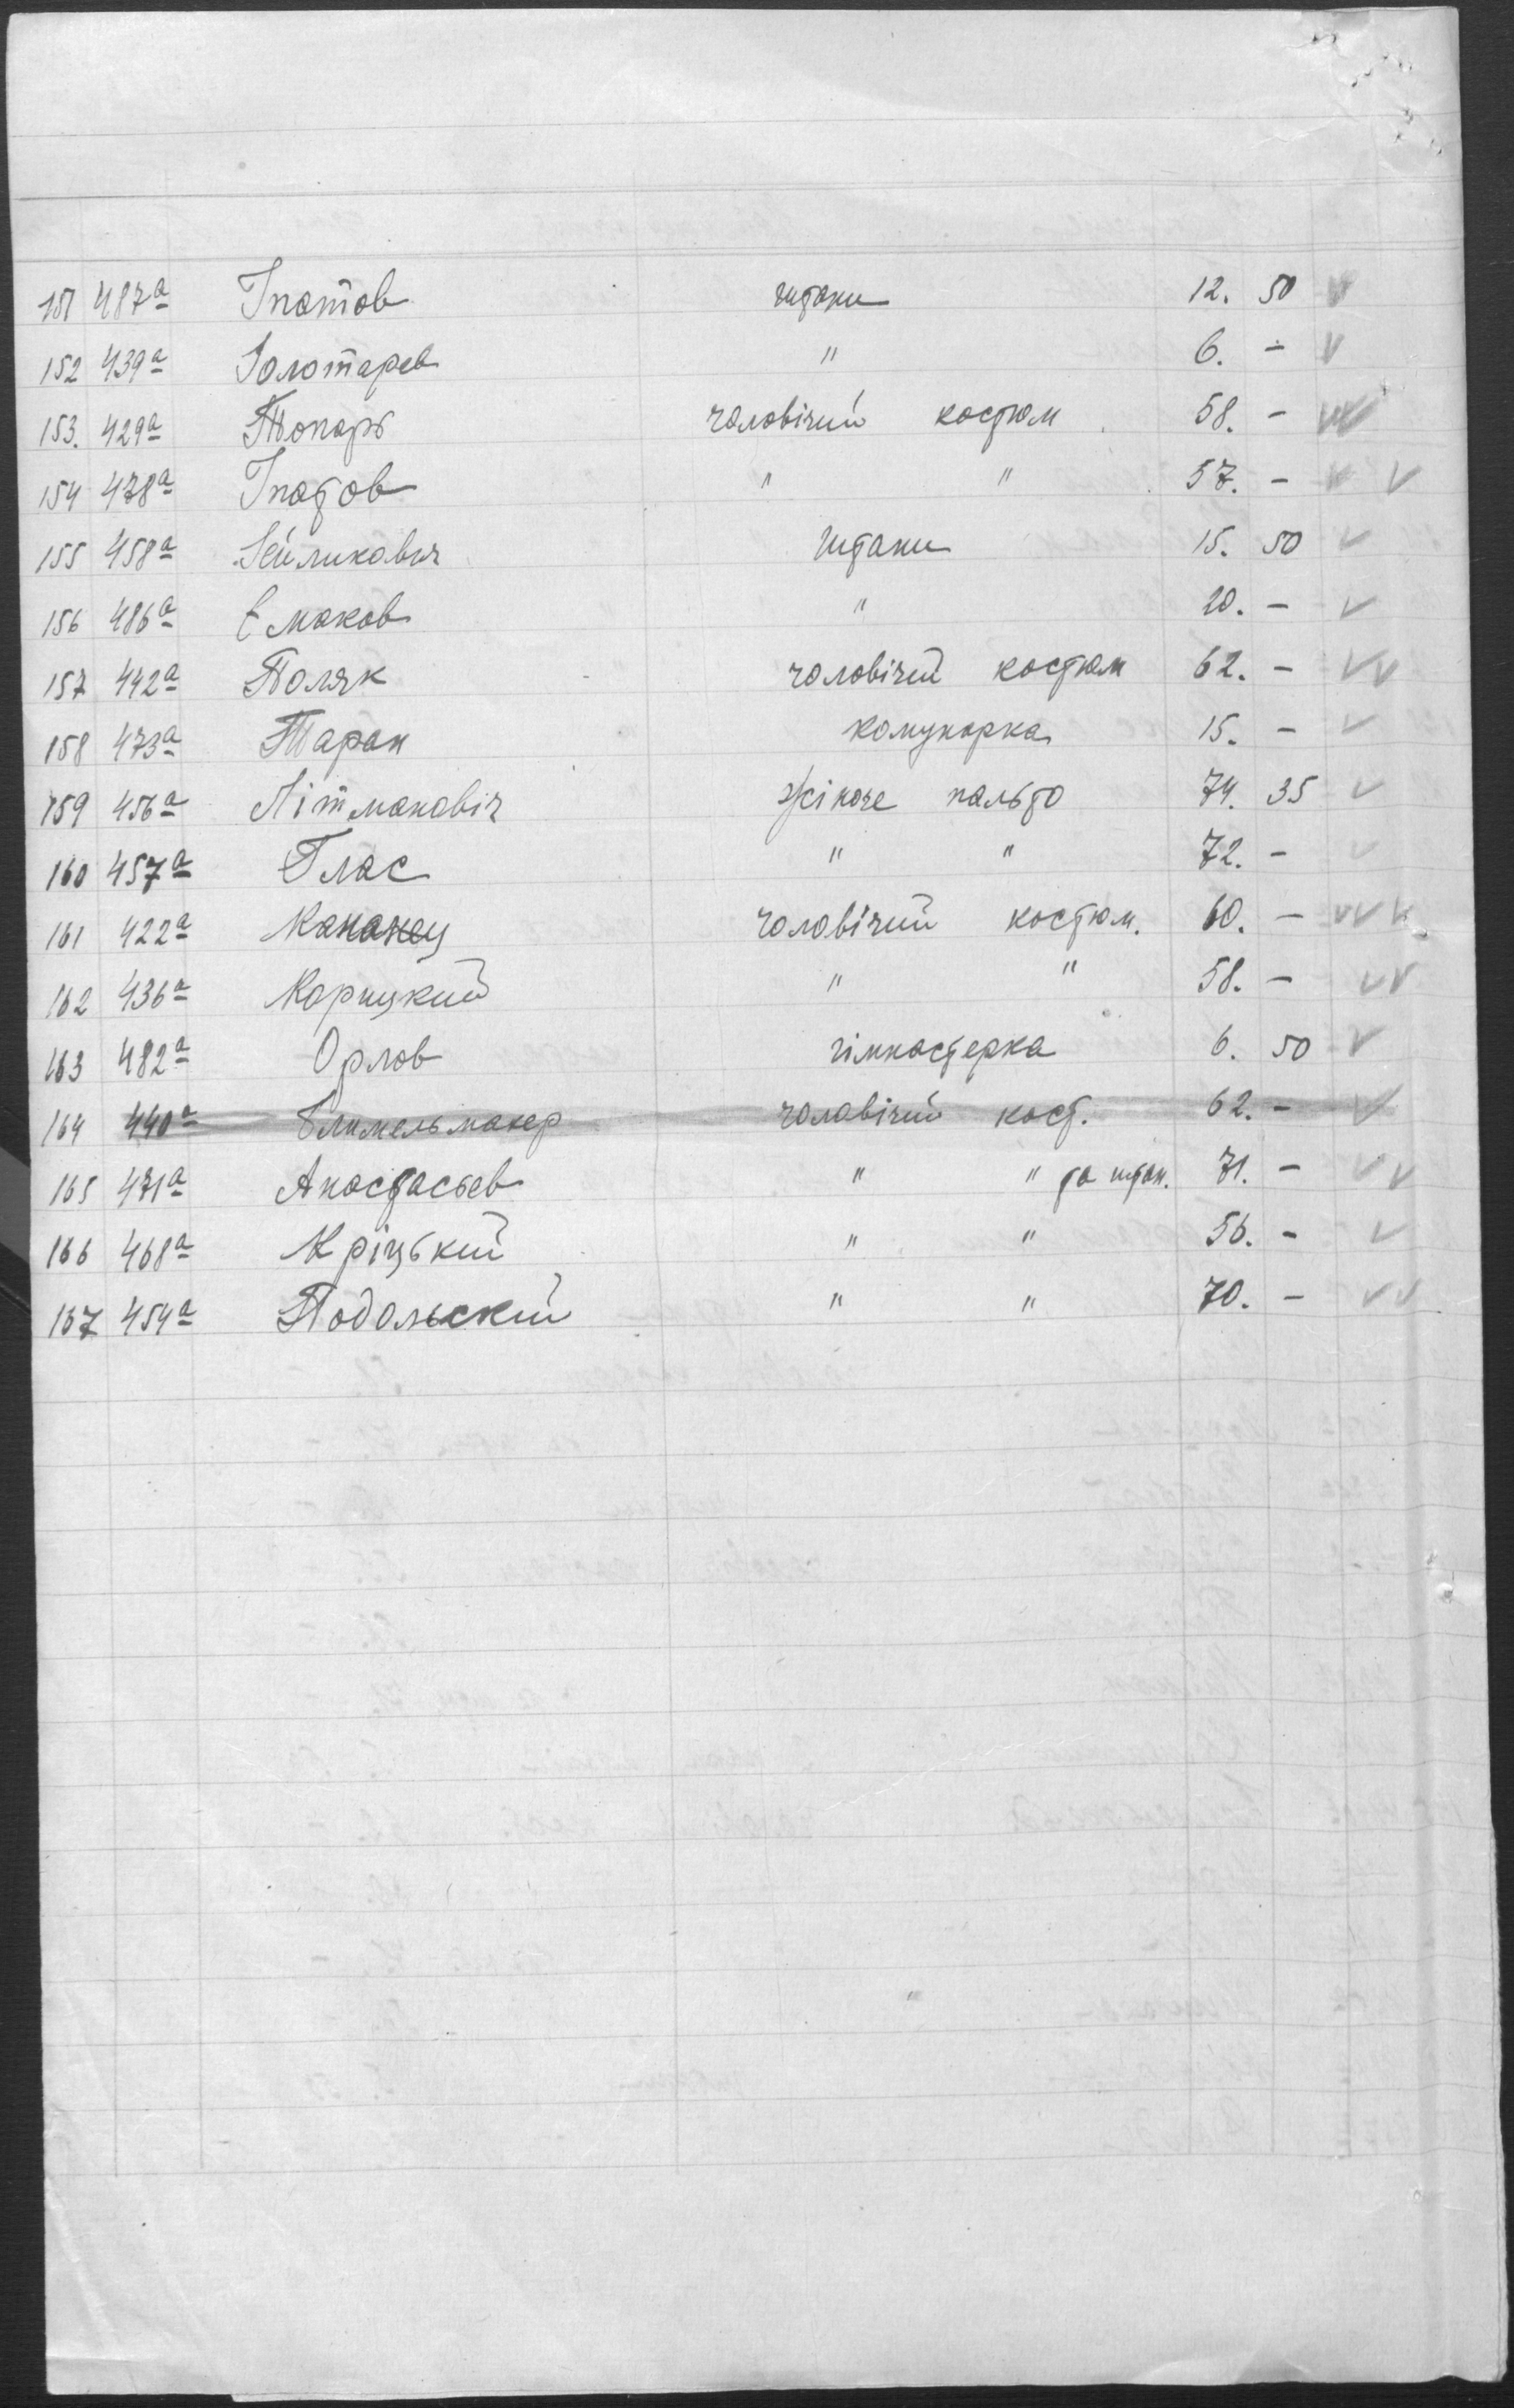 151 487а Іпатов штани 12. 50 V
152 439а Золотарев " 6. - V
153. 429а Топарь чоловічий костюм 58. - VV
154 478а Іпатов " " 57. - V V
155 458а Зейликович штани 15. 50 V
156 486а Ємаков " 20. - V
157 442а Поляк чоловічий костюм 62. - VV
158 473а Таран 15. - V
159 456а Літманавіч жіноче пальто 74. 35 V
160 457а Глас " " 72. - V
161 422а Кананец чоловічий костюм. 60. - VVV
162 436а Корицкий " " 58. - VV
163 482а Орлов гімнастерка 6. 50 V
164 440а чоловічий кост. 62. - V
165 471а Анастасьев " " та штан. 71. - VV
166 468а Кріцький " " 56. - V
167 454а Подольскій " " 70. - VV